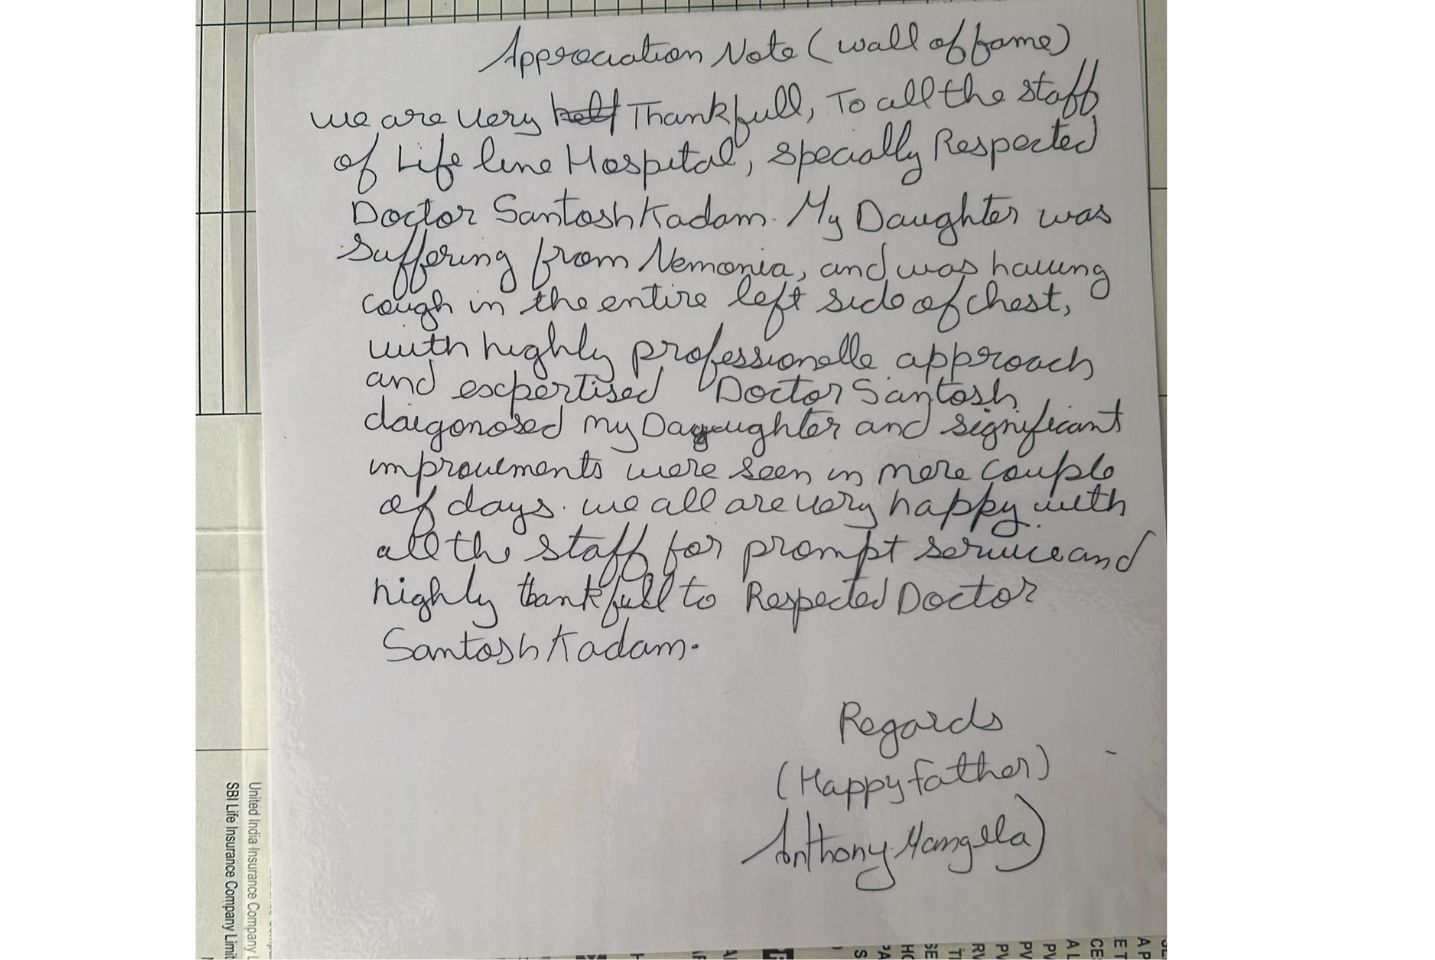 Appreciation Note (wall of fame)
we are very half Thankfull, To all the staff
of Life line Hospital, specially Respected
Doctor Santosh Kadam. My Daughter was
suffering from Nemonia, and was having
cough in the entire left side of chest,
with highly professionelle approach
and escpertised Doctor Santosh
daigonosed my Daughter and significant
improvements were seen in mere couple
of days. we all are very happy with
all the staff for prompt service and
highly thankfull to Respected Doctor
Santosh Kadam.
Regards
(Happy father)
Anthony Mangella)
United India Insurance Company L
SBI Life Insurance Company Limit